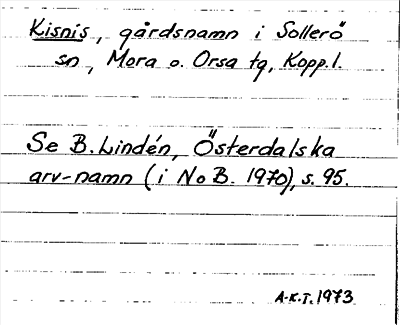 Kisnis, gårdsnamn i Sollerö
sn, Mora o. Orsa tg, Kopp.l.
Se B. Lindén, Österdalska
arv-namn (i NoB. 1970), s. 95.
A-K.T. 1973